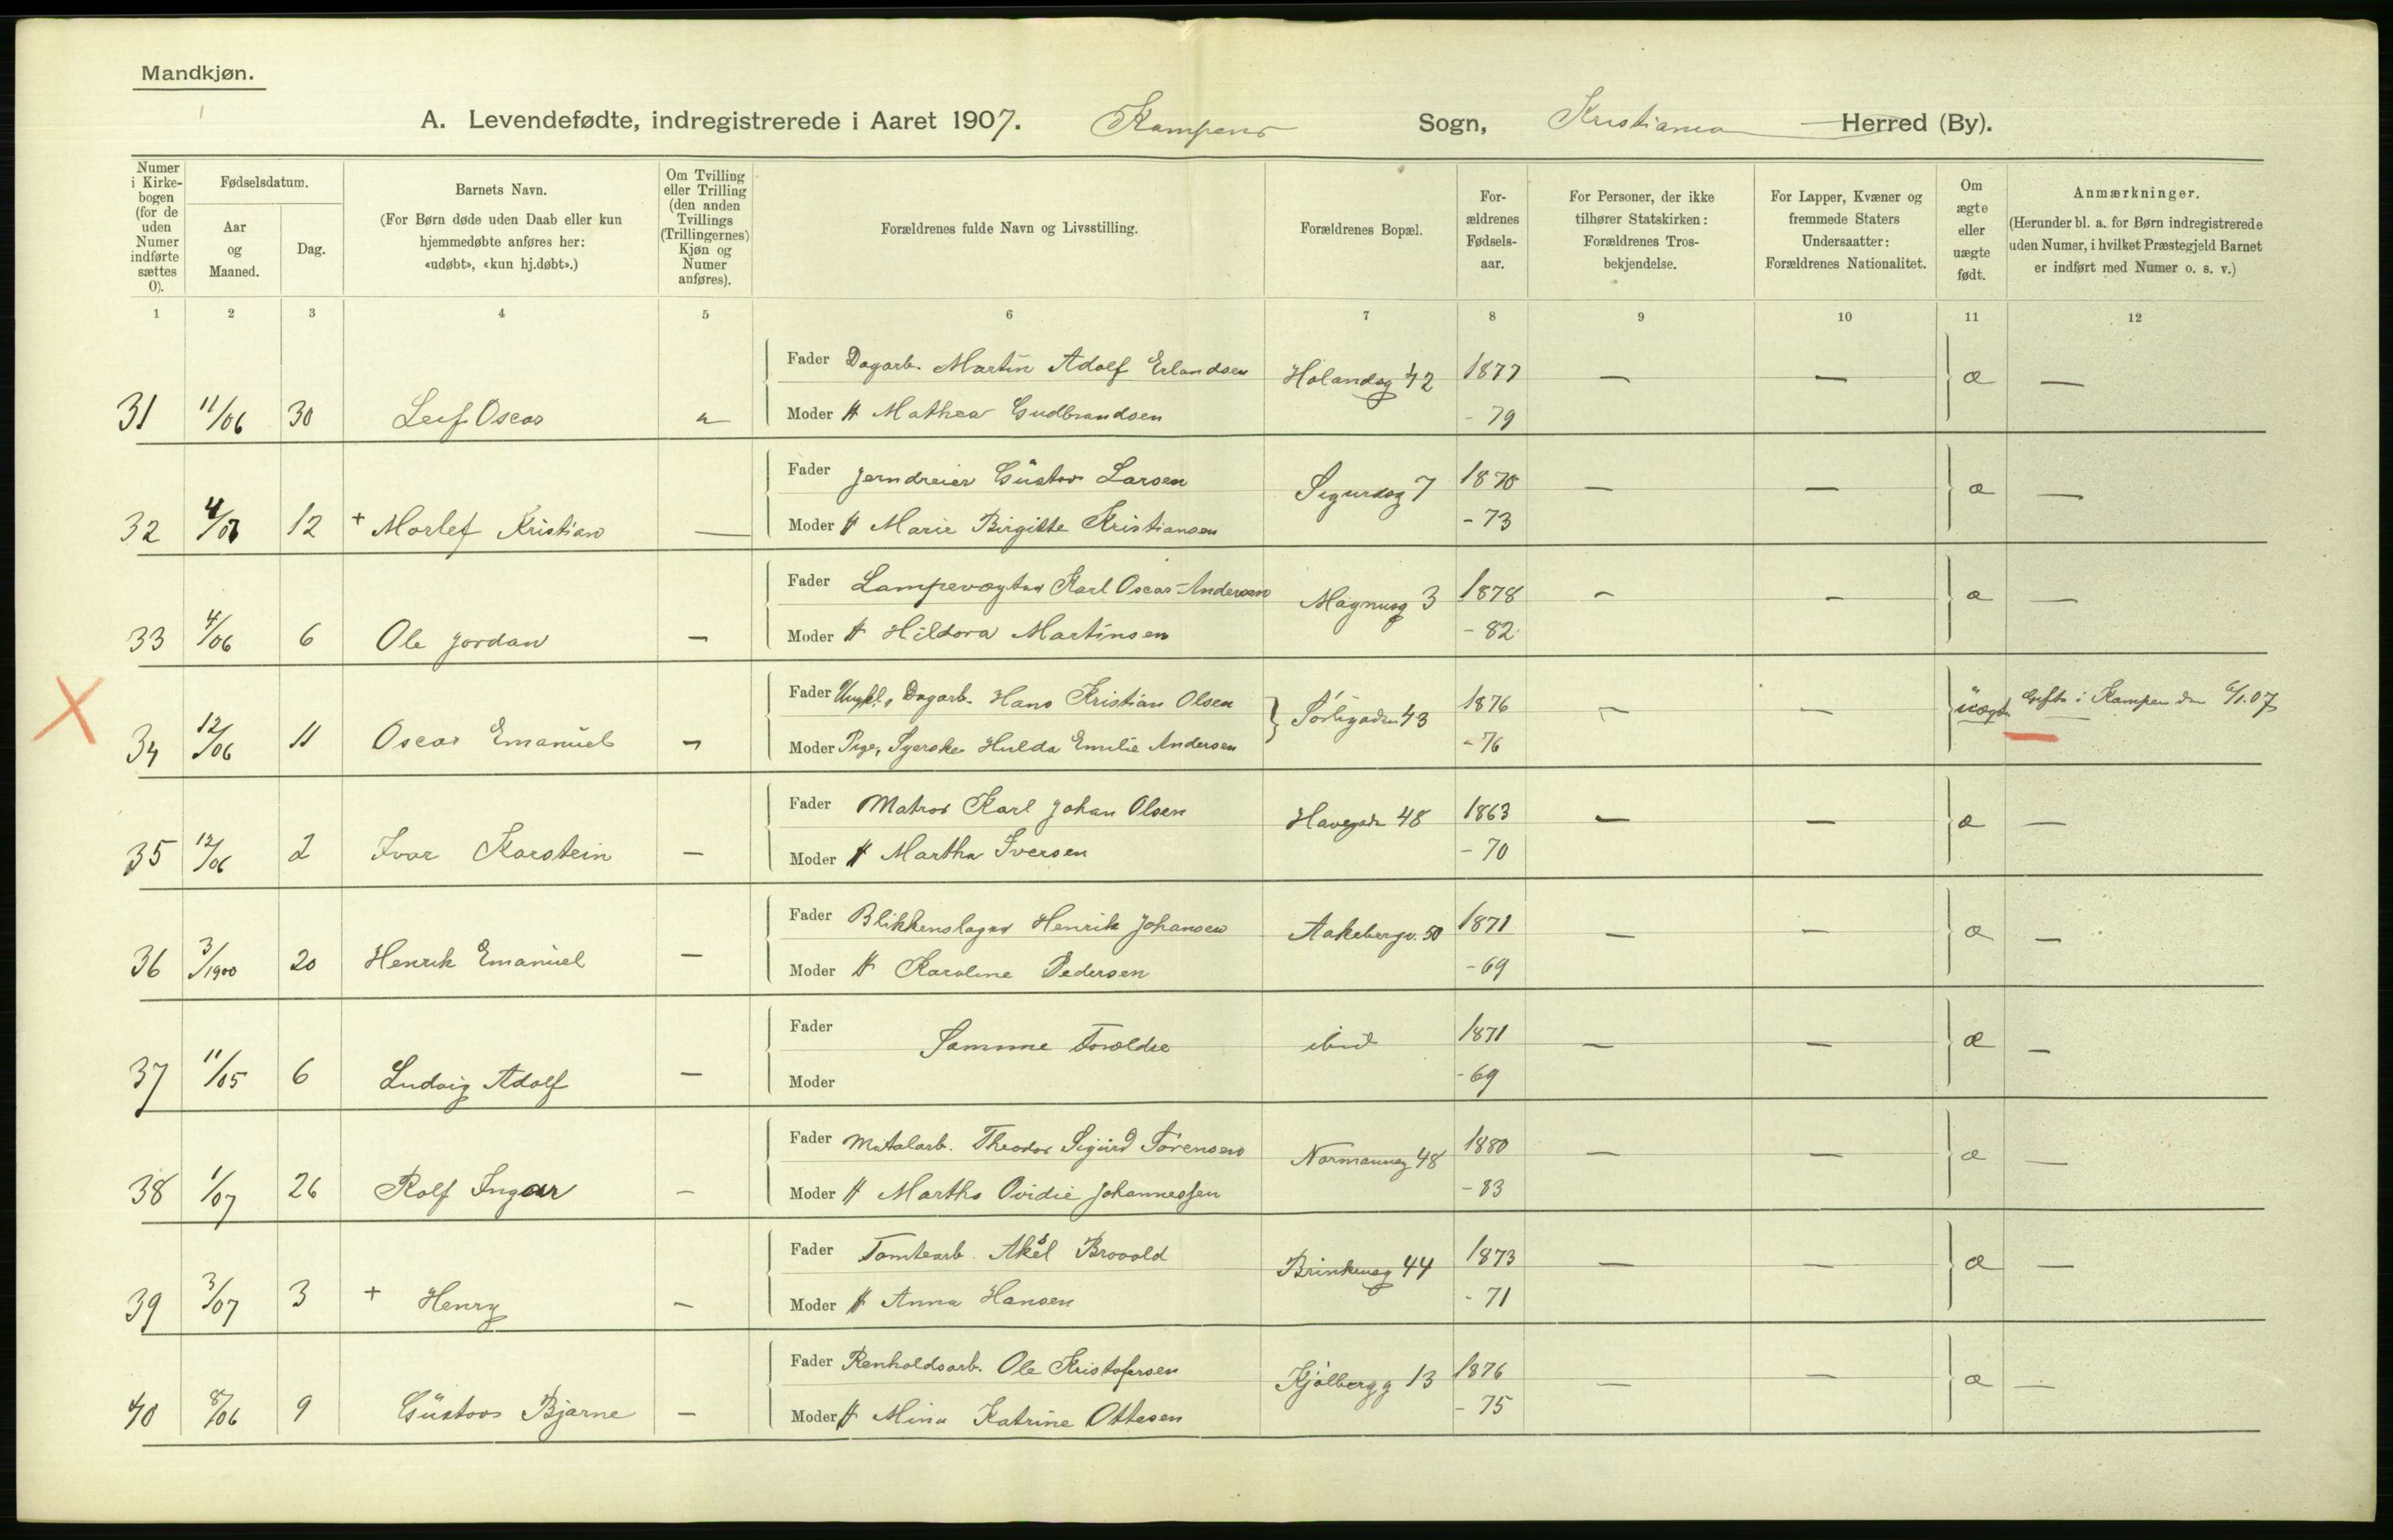 Mandkjøn.
A. Levendefødte, indregistrerede i Aaret 1907. Kampens Sogn, Kristiania Herred (By).
Numer i Kirkebogen (for de uden Numer indførte sættes 0).
Fødselsdatum.
Aar og Maaned.
Dag.
Barnets Navn.
(For Børn døde uden Daab eller kun hjemmedøbte anføres her: «udøbt», «kun hj.døbt».)
Om Tvilling eller Trilling (den anden Tvillings (Trillingernes) Kjøn og Numer anføres).
Forældrenes fulde Navn og Livsstilling.
Forældrenes Bopæl.
Forældrenes Fødselsaar.
For Personer, der ikke tilhører Statskirken: Forældrenes Trosbekjendelse.
For Lapper, Kvæner og fremmede Staters Undersaatter: Forældrenes Nationalitet.
Om ægte eller uægte født.
Anmærkninger.
(Herunder bl. a. for Børn indregistrerede uden Numer, i hvilket Præstegjeld Barnet er indført med Numer o. s. v.)
1 2 3 4 5 6 7 8 9 10 11 12
Fader Dagarb. Martin Adolf Erlandsen Hølandsg 42 1877 — — æ —
31 11/06 30 Leif Oscar Moder H Mathea Gudbrandsen - 79
Fader Jerndreier Gustav Larsen Sigurdsg 7 1870 — — æ —
32 4/07 12 + Morlef Kristian — Moder H Marie Birgitte Kristiansen - 73
Fader Lampevogter Karl Oscar Andersen Magnusg 3 1878 — — æ —
33 4/06 6 Ole Jordan — Moder H Hildora Martinsen - 82
Fader Ungk., Dagarb. Hans Kristian Olsen Sörligaden 43 1876 — — uægte Gifte i Kampen den 6/1.07
34 12/06 11 Oscar Emanuel — Moder Pige, Syerske Hulda Emilie Andersen - 76
Fader Matros Karl Johan Olsen Havegade 48 1863 — — æ —
35 12/06 2 Ivar Karstein — Moder H Martha Iversen - 70
Fader Blikkenslager Henrik Johansen Aakebergv. 50 1871 — — æ —
36 3/1900 20 Henrik Emanuel — Moder H Karoline Pedersen - 69
Fader Samme Foræeldre ibid 1871 — — æ —
37 11/05 6 Ludvig Adolf — Moder - 69
Fader Metalarb. Theodor Sigurd Sörensen Normannsg 48 1880 — — æ —
38 1/07 26 Rolf Ingar — Moder H Martha Ovidie Johannessen - 83
Fader Tomtearb. Aksel Brovold Brinkensg 44 1873 — — æ —
39 3/07 3 + Henry — Moder H Anna Hansen - 71
Fader Renholdsarb. Ole Kristofersen Kjölbergg 13 1876 — — æ —
40 8/06 9 Gustav Bjarne — Moder H Mina Katrine Ottesen - 75